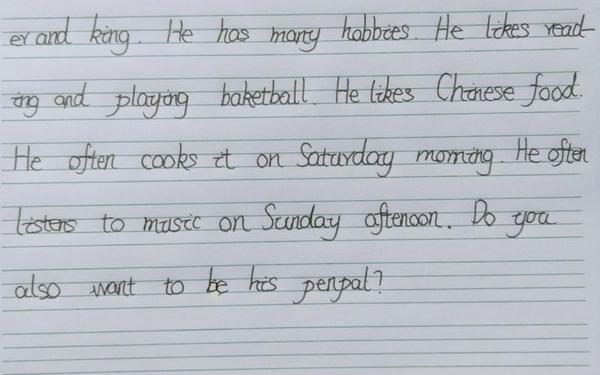 er and king. He has many hobbies. He likes read-
ing and playing baketball. He likes Chinese food.
He often cooks it on Saturday morning. He often
listens to music on Sunday aftenoon. Do you
also want to be his penpal?